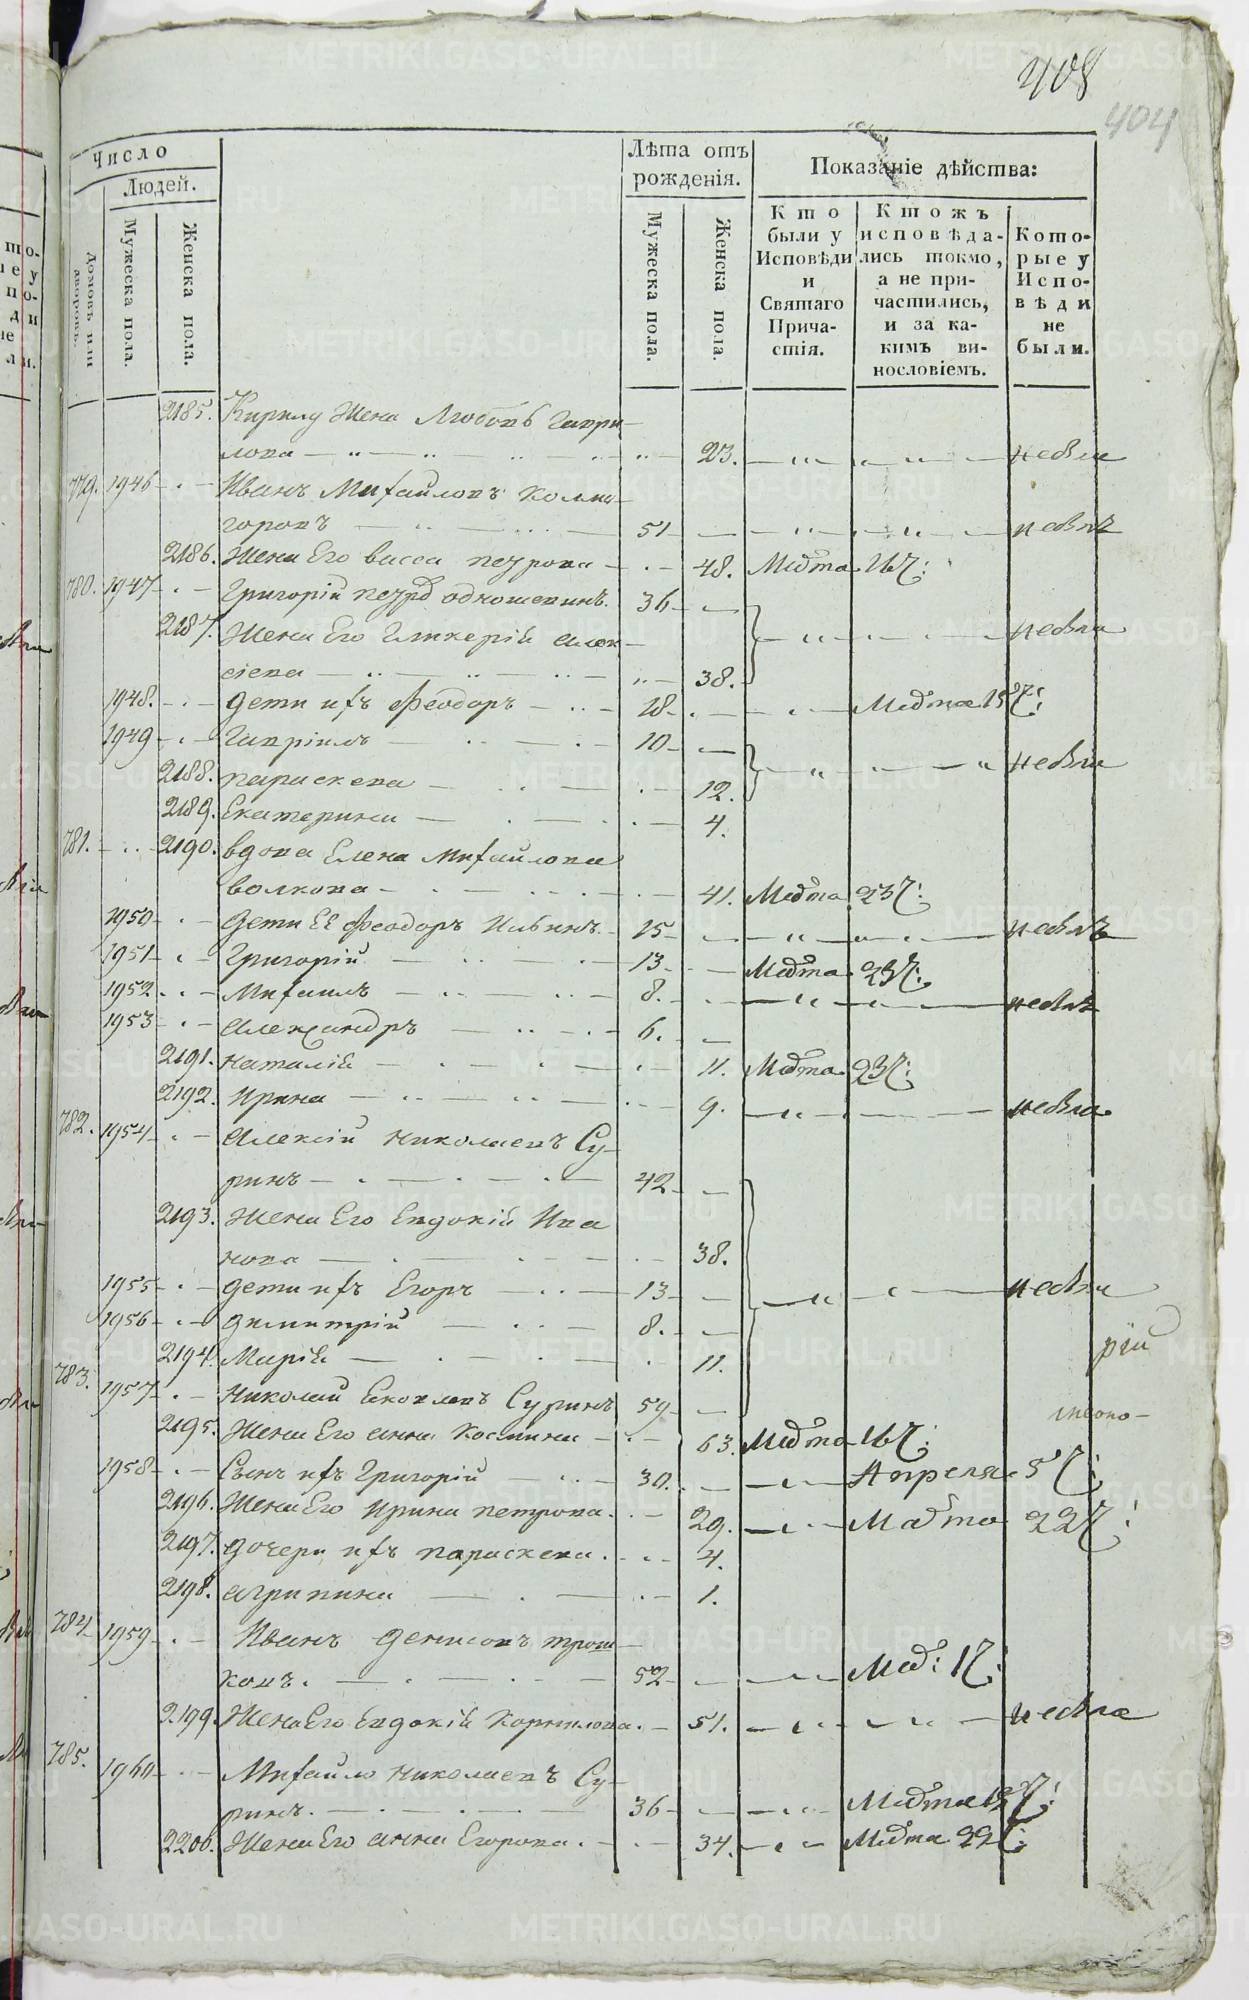 408
404
Число
Людей.
Домовъ или дворовъ.
Мужеска пола.
Женска пола.
Лѣта отъ рожденія.
Мужеска пола.
Женска пола.
Показаніе дѣйства:
Кто были у Исповѣди и Святаго Причастія.
Ктожъ исповѣдались токмо, а не причастились, и за какимъ винословіемъ.
Которые у Исповѣди не были.
2185. Кирилу Жена Любовь Гаври-
лова 23. небыла
779. 1946 Иванъ Михайловъ Колмо-
горовъ 51 небылъ
2186. Жена Его васса петрова 48. Марта 16 Ч:
780. 1947 Григорій петр: одношевинъ. 36
2187. Жена Его Гликерія алек- небыли
сіева 38.
1948. дети ихъ Феодоръ 18 Марта 15 Ч:
1949 Гавріилъ 10 небыли
2188. параскева 12.
2189. Екатерина 4.
781. 2190. вдова Елена Михайлова
волкова 41. Марта 23 Ч:
1950 дети Её Феодоръ Ильинъ. 15 небылъ
1951 Григорій 13 Марта 23 Ч:
1952 Михаилъ 8. небылъ
1953 александръ 6.
2191. наталія 11. Марта 23 Ч:
2192. Ирина 9. небыла
782. 1954 алексій николаевъ Су-
ринъ 42
2193. Жена Его Евдокія Ива
нова 38.
1955 дети ихъ Егоръ 13 небыли
1956 димитрій 8.
2194. Марія 11.
783. 1957 николай Яковлевъ Суринъ 59
2195. Жена Его анна Космина 63. Марта 16 Ч:
1958 Сынъ ихъ Григорій 30. Апреля 5 Ч:
2196. Жена Его Ирина петрова. 29. Марта 22 Ч:
2197. дочери ихъ параскева. 4.
2198. агрипина 1.
784. 1959 Иванъ денисовъ трош-
ковъ. 52 Мар: 1 Ч:
2199. Жена Его Евдокія Корнилова. 51. небыла
785. 1960 Михайло николаевъ Су-
ринъ. 36 Марта 15 Ч:
2200. Жена Его анна Егорова. 34. Марта 22 Ч: